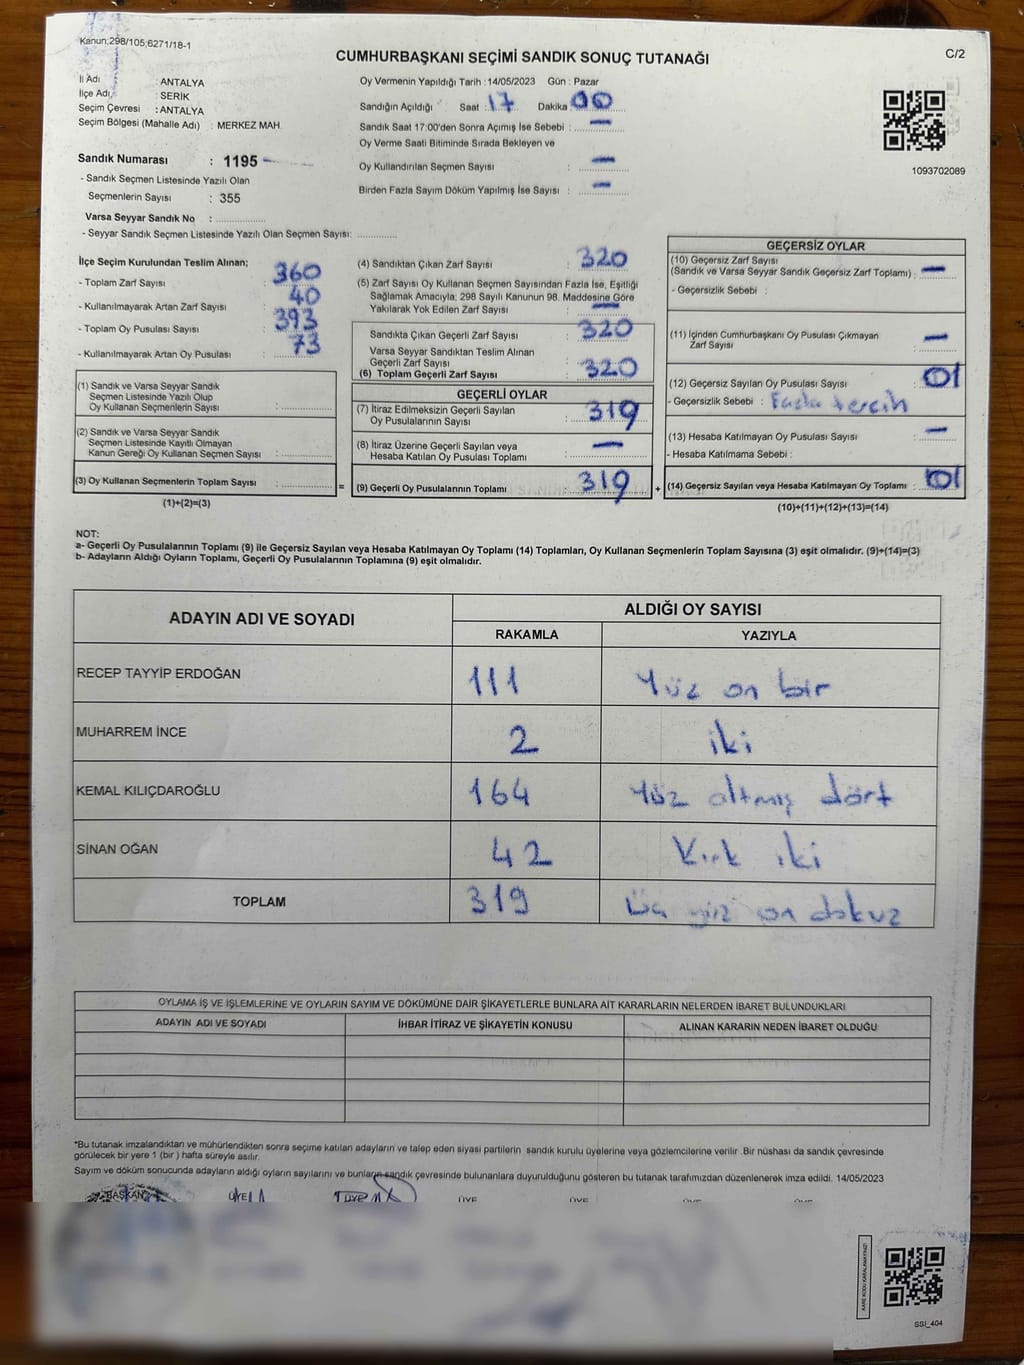 Kanun:298/105;6271/18-1
CUMHURBAŞKANI SEÇİMİ SANDIK SONUÇ TUTANAĞI
C/2
İl Adı : ANTALYA
İlçe Adı : SERİK
Seçim Çevresi : ANTALYA
Seçim Bölgesi (Mahalle Adı) : MERKEZ MAH.
Sandık Numarası : 1195
- Sandık Seçmen Listesinde Yazılı Olan
Seçmenlerin Sayısı : 355
Varsa Seyyar Sandık No :
- Seyyar Sandık Seçmen Listesinde Yazılı Olan Seçmen Sayısı:
Oy Vermenin Yapıldığı Tarih :14/05/2023 Gün : Pazar
Sandığın Açıldığı Saat : 17 Dakika : 00
Sandık Saat 17:00'den Sonra Açımış İse Sebebi : —
Oy Verme Saati Bitiminde Sırada Bekleyen ve
Oy Kullandırılan Seçmen Sayısı : —
Birden Fazla Sayım Döküm Yapılmış İse Sayısı : —
1093702089
İlçe Seçim Kurulundan Teslim Alınan;
- Toplam Zarf Sayısı : 360
- Kullanılmayarak Artan Zarf Sayısı : 40
- Toplam Oy Pusulası Sayısı : 393
- Kullanılmayarak Artan Oy Pusulası : 73
(1) Sandık ve Varsa Seyyar Sandık
Seçmen Listesinde Yazılı Olup
Oy Kullanan Seçmenlerin Sayısı :
(2) Sandık ve Varsa Seyyar Sandık
Seçmen Listesinde Kayıtlı Olmayan
Kanun Gereği Oy Kullanan Seçmen Sayısı :
(3) Oy Kullanan Seçmenlerin Toplam Sayısı :
(1)+(2)=(3)
(4) Sandıktan Çıkan Zarf Sayısı : 320
(5) Zarf Sayısı Oy Kullanan Seçmen Sayısından Fazla İse, Eşitliği
Sağlamak Amacıyla; 298 Sayılı Kanunun 98. Maddesine Göre
Yakılarak Yok Edilen Zarf Sayısı : —
Sandıkta Çıkan Geçerli Zarf Sayısı : 320
Varsa Seyyar Sandıktan Teslim Alınan
Geçerli Zarf Sayısı :
(6) Toplam Geçerli Zarf Sayısı : 320
GEÇERLİ OYLAR
(7) İtiraz Edilmeksizin Geçerli Sayılan
Oy Pusulalarının Sayısı : 319
(8) İtiraz Üzerine Geçerli Sayılan veya
Hesaba Katılan Oy Pusulası Toplamı : —
= (9) Geçerli Oy Pusulalarının Toplamı : 319
GEÇERSİZ OYLAR
(10) Geçersiz Zarf Sayısı
(Sandık ve Varsa Seyyar Sandık Geçersiz Zarf Toplamı) : —
- Geçersizlik Sebebi :
(11) İçinden Cumhurbaşkanı Oy Pusulası Çıkmayan
Zarf Sayısı : —
(12) Geçersiz Sayılan Oy Pusulası Sayısı : 01
- Geçersizlik Sebebi : Fazla tercih
(13) Hesaba Katılmayan Oy Pusulası Sayısı : —
- Hesaba Katılmama Sebebi :
+ (14) Geçersiz Sayılan veya Hesaba Katılmayan Oy Toplamı : 01
(10)+(11)+(12)+(13)=(14)
NOT:
a- Geçerli Oy Pusulalarının Toplamı (9) ile Geçersiz Sayılan veya Hesaba Katılmayan Oy Toplamı (14) Toplamları, Oy Kullanan Seçmenlerin Toplam Sayısına (3) eşit olmalıdır. (9)+(14)=(3)
b- Adayların Aldığı Oyların Toplamı, Geçerli Oy Pusulalarının Toplamına (9) eşit olmalıdır.
ADAYIN ADI VE SOYADI
ALDIĞI OY SAYISI
RAKAMLA YAZIYLA
RECEP TAYYİP ERDOĞAN 111 Yüz on bir
MUHARREM İNCE 2 iki
KEMAL KILIÇDAROĞLU 164 Yüz altmış dört
SİNAN OĞAN 42 Kırk iki
TOPLAM 319 Üç yüz on dokuz
OYLAMA İŞ VE İŞLEMLERİNE VE OYLARIN SAYIM VE DÖKÜMÜNE DAİR ŞİKAYETLERLE BUNLARA AİT KARARLARIN NELERDEN İBARET BULUNDUKLARI
ADAYIN ADI VE SOYADI İHBAR İTİRAZ VE ŞİKAYETİN KONUSU ALINAN KARARIN NEDEN İBARET OLDUĞU
*Bu tutanak imzalandıktan ve mühürlendikten sonra seçime katılan adayların ve talep eden siyasi partilerin sandık kurulu üyelerine veya gözlemcilerine verilir. Bir nüshası da sandık çevresinde
görülecek bir yere 1 (bir ) hafta süreyle asılır.
Sayım ve döküm sonucunda adayların aldığı oyların sayılarını ve bunların sandık çevresinde bulunanlara duyurulduğunu gösteren bu tutanak tarafımızdan düzenlenerek imza edildi. 14/05/2023
BAŞKAN ÜYE ÜYE ÜYE ÜYE ÜYE ÜYE
KARE KODU KARALAMAYINIZ!
SSI_404